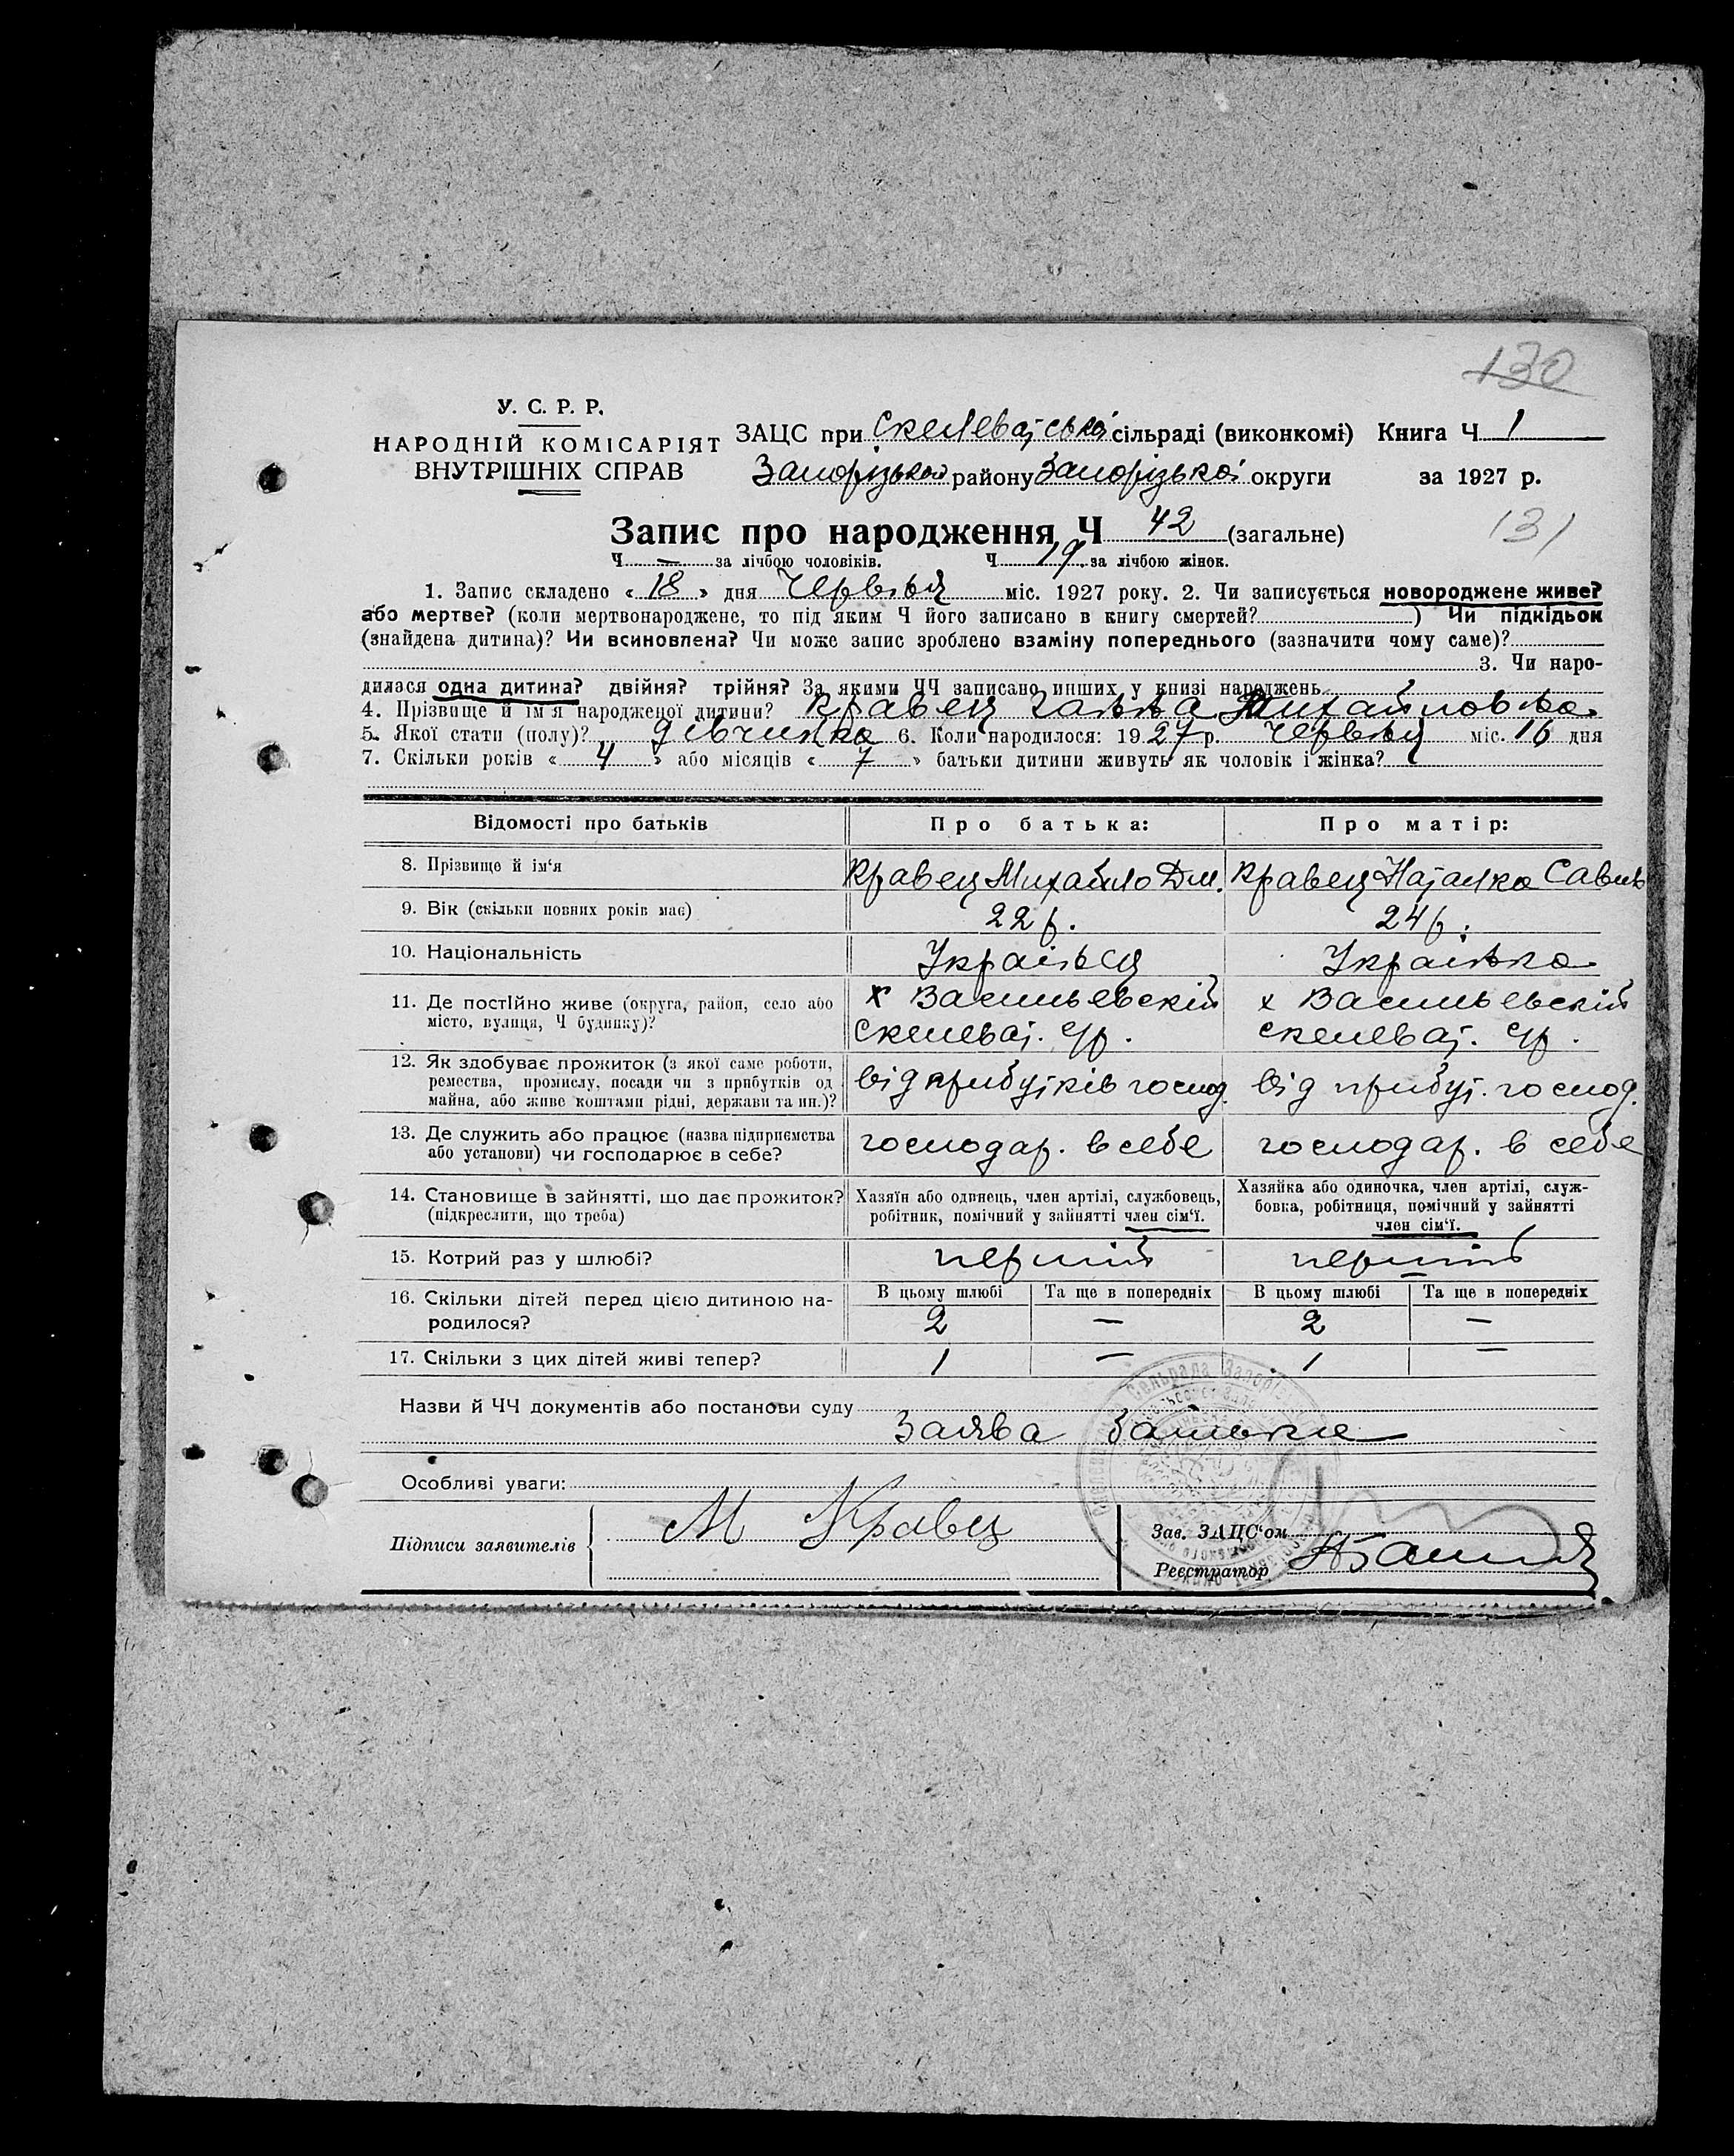 130
У. С. Р. Р.
НАРОДНІЙ КОМІСАРІЯТ
ВНУТРІШНІХ СПРАВ
ЗАЦС при Скелеватській сільраді (виконкомі) Книга Ч 1
Запорізького району Запорізької округи за 1927 р.
Запис про народження Ч 42 (загальне)
131
Ч — за лічбою чоловіків. Ч 19. за лічбою жінок.
1. Запис складено « 18 » дня Червня міс. 1927 року. 2. Чи записується новороджене живе?
або мертве? (коли мертвонароджене, то під яким Ч його записано в книгу смертей? ) Чи підкідьок
(знайдена дитина)? Чи всиновлена? Чи може запис зроблено взаміну попереднього (зазначити чому саме)?
3. Чи наро-
дилася одна дитина? двійня? трійня? За якими ЧЧ записано инших у книзі народжень
4. Прізвище й ім'я народженої дитини? Кравец Ганна Михайловна
5. Якої стати (полу)? дівчинка 6. Коли народилося: 1927 р. Червня міс. 16 дня
7. Скільки років « 4 » або місяців « 7 » батьки дитини живуть як чоловік і жінка?
Відомості про батьків Про батька: Про матір:
8. Прізвище й ім'я Кравец Михайло Дм. Кравец Наталка Савив
9. Вік (скільки повних років має) 22 р. 24 р.
10. Національність Українець Українка
11. Де постійно живе (округа, район, село або х Васильевскій х Васильевскій
місто, вулиця, Ч будинку)? Скелеват. с/р. скелеват. с/р.
12. Як здобуває прожиток (з якої саме роботи,
ремества, промислу, посади чи з прибутків од від прибутків господ. від прибут. господ.
майна, або живе коштами рідні, держави та ин.)?
13. Де служить або працює (назва підприємства господар. в себе господар. в себе
або установи) чи господарює в себе?
14. Становище в зайнятті, що дає прожиток? Хазяїн або одинець, член артілі, службовець, Хазяйка або одиночка, член артілі, служ-
(підкреслити, що треба) робітник, помічний у зайнятті член сім'ї. бовка, робітниця, помічний у зайнятті
член сім'ї.
15. Котрий раз у шлюбі? перший перший
16. Скільки дітей перед цією дитиною на- В цьому шлюбі Та ще в попередніх В цьому шлюбі Та ще в попередніх
родилося? 2 — 2 —
17. Скільки з цих дітей живі тепер? 1 — 1 —
Назви й ЧЧ документів або постанови суду
Заява батька
Особливі уваги:
Підписи заявителів М Кравец
Зав. ЗАЦС'ом
Реєстратор